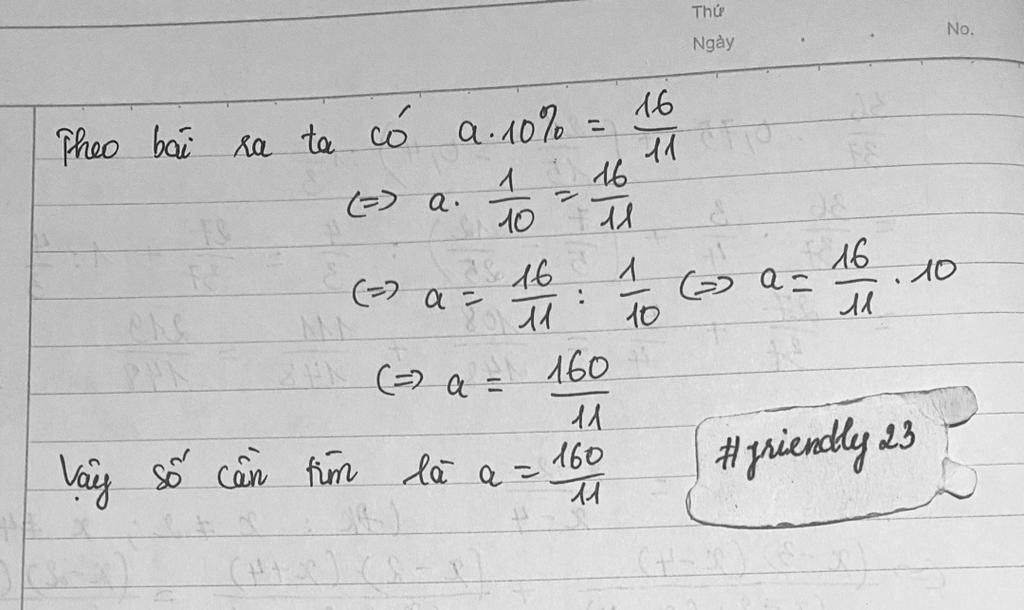 Thứ
Ngày
No.
Theo bài ra ta có a.10% = 16/11
(=> a. 1/10 = 16/11
(=> a = 16/11 : 1/10 (=> a = 16/11 . 10
(=> a = 160/11
Vậy số cần tìm là a = 160/11
#friendly 23